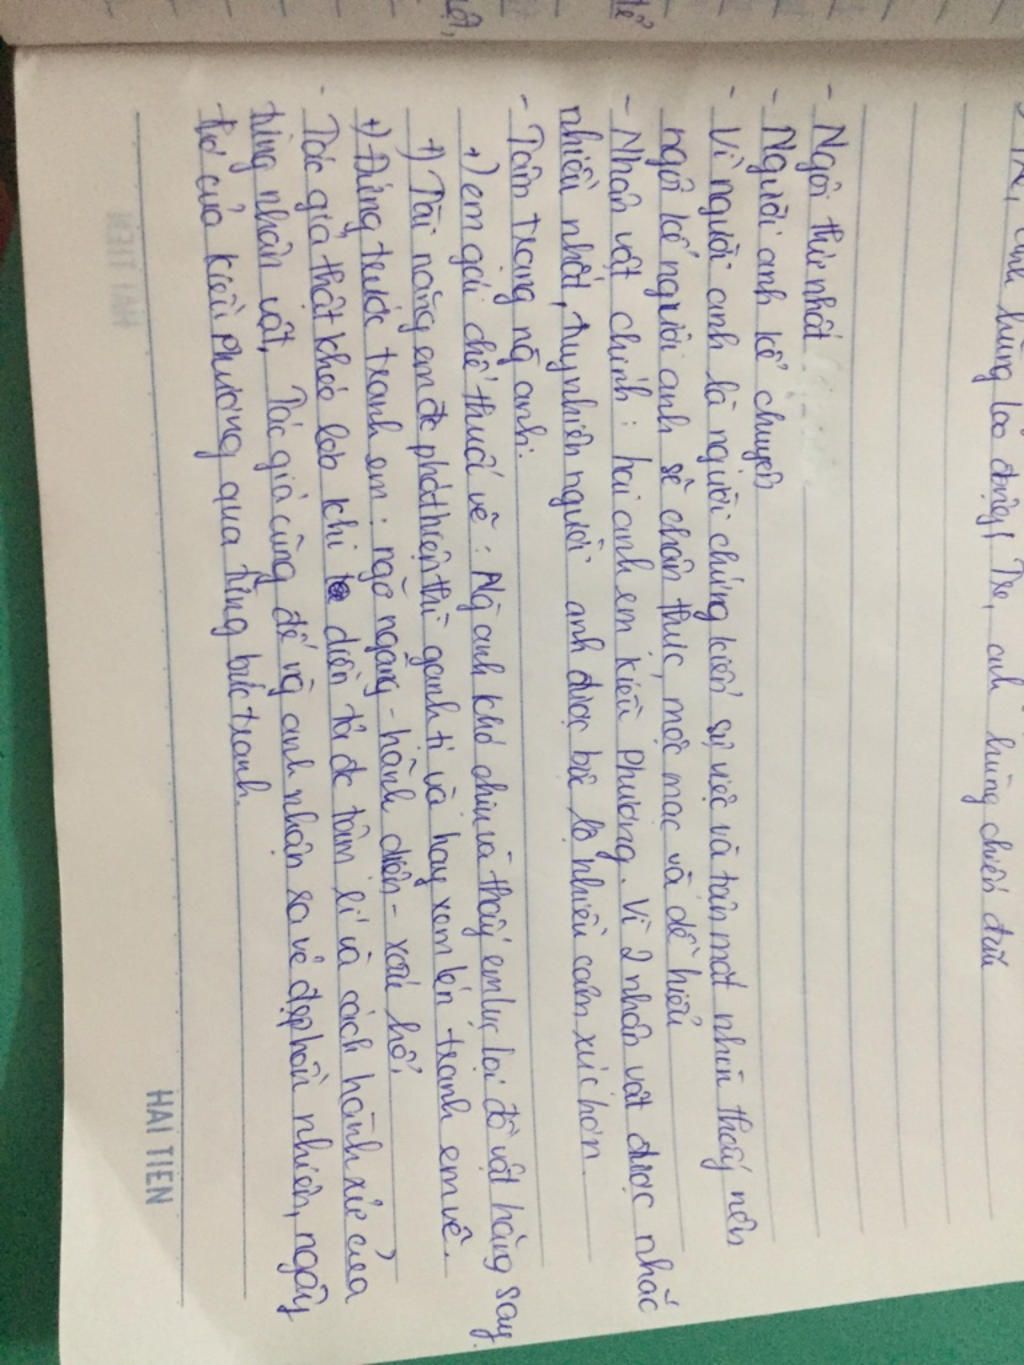 anh hùng lao động! Tre, anh hùng chiến đấu
- Ngôi thứ nhất
- Người anh kể chuyện
- Vì người anh là người chứng kiến sự việc và tận mắt nhìn thấy nên
ngôi kể người anh sẽ chân thực, mộc mạc và dễ hiểu
- Nhân vật chính: hai anh em Kiều Phương. Vì 2 nhân vật được nhắc
nhiều nhất, tuy nhiên người anh được bộc lộ nhiều cảm xúc hơn.
- Tâm trạng ng anh:
+) em gái chế thuốc vẽ: Ng anh khó chịu và thấy em lục lọi đồ vật hăng say.
+) Tài năng em đc phát hiện thì ganh tị và hay xem lén tranh em vẽ.
+) Đứng trước tranh em: ngỡ ngàng - hãnh diện - xấu hổ.
- Tác giả thật khéo léo khi diễn tả đc tâm lí và cách hành xử của
từng nhân vật. Tác giả cũng để ng anh nhận ra vẻ đẹp hồn nhiên, ngây
thơ của Kiều Phương qua từng bức tranh.
HẢI TIẾN